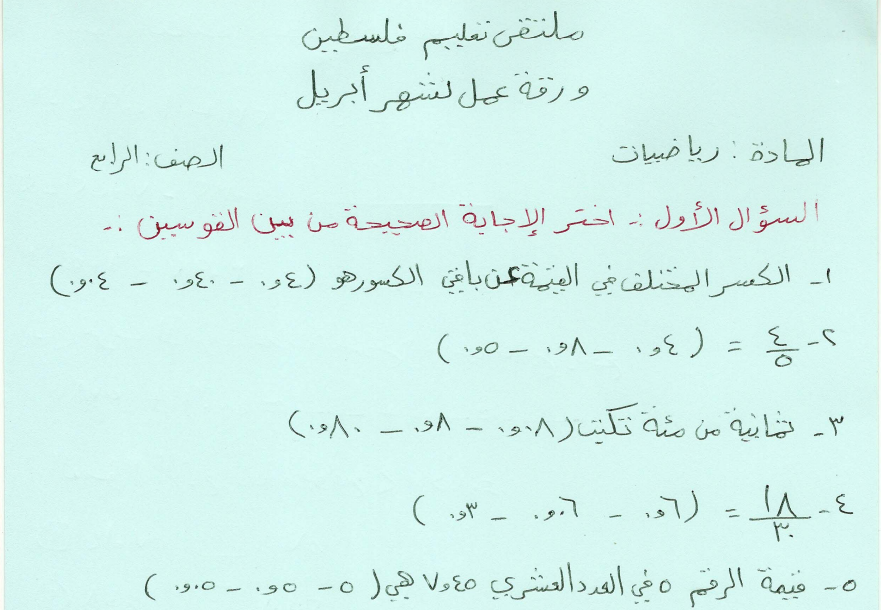 ملتقى تعليم فلسطين
ورقة عمل لشهر أبريل
المادة : رياضيات الصف : الرابع
السؤال الأول :- اختر الإجابة الصحيحة من بين القوسين :-
١- الكسر المختلف في القيمة عن باقي الكسور هو (٤و٠ – ٤٠و٠ – ٠٤و٠)
٢- ٤/٥ = (٤و٠ – ٨و٠ – ٥و٠)
٣- ثمانية من مئة تكتب (٠٨و٠ – ٨و٠ – ٨٠و٠)
٤- ١٨/٣٠ = (٦و٠ – ٠٦و٠ – ٣و٠)
٥- قيمة الرقم ٥ في العدد العشري ٤٥و٧ هي (٥ – ٥و٠ – ٠٥و٠)